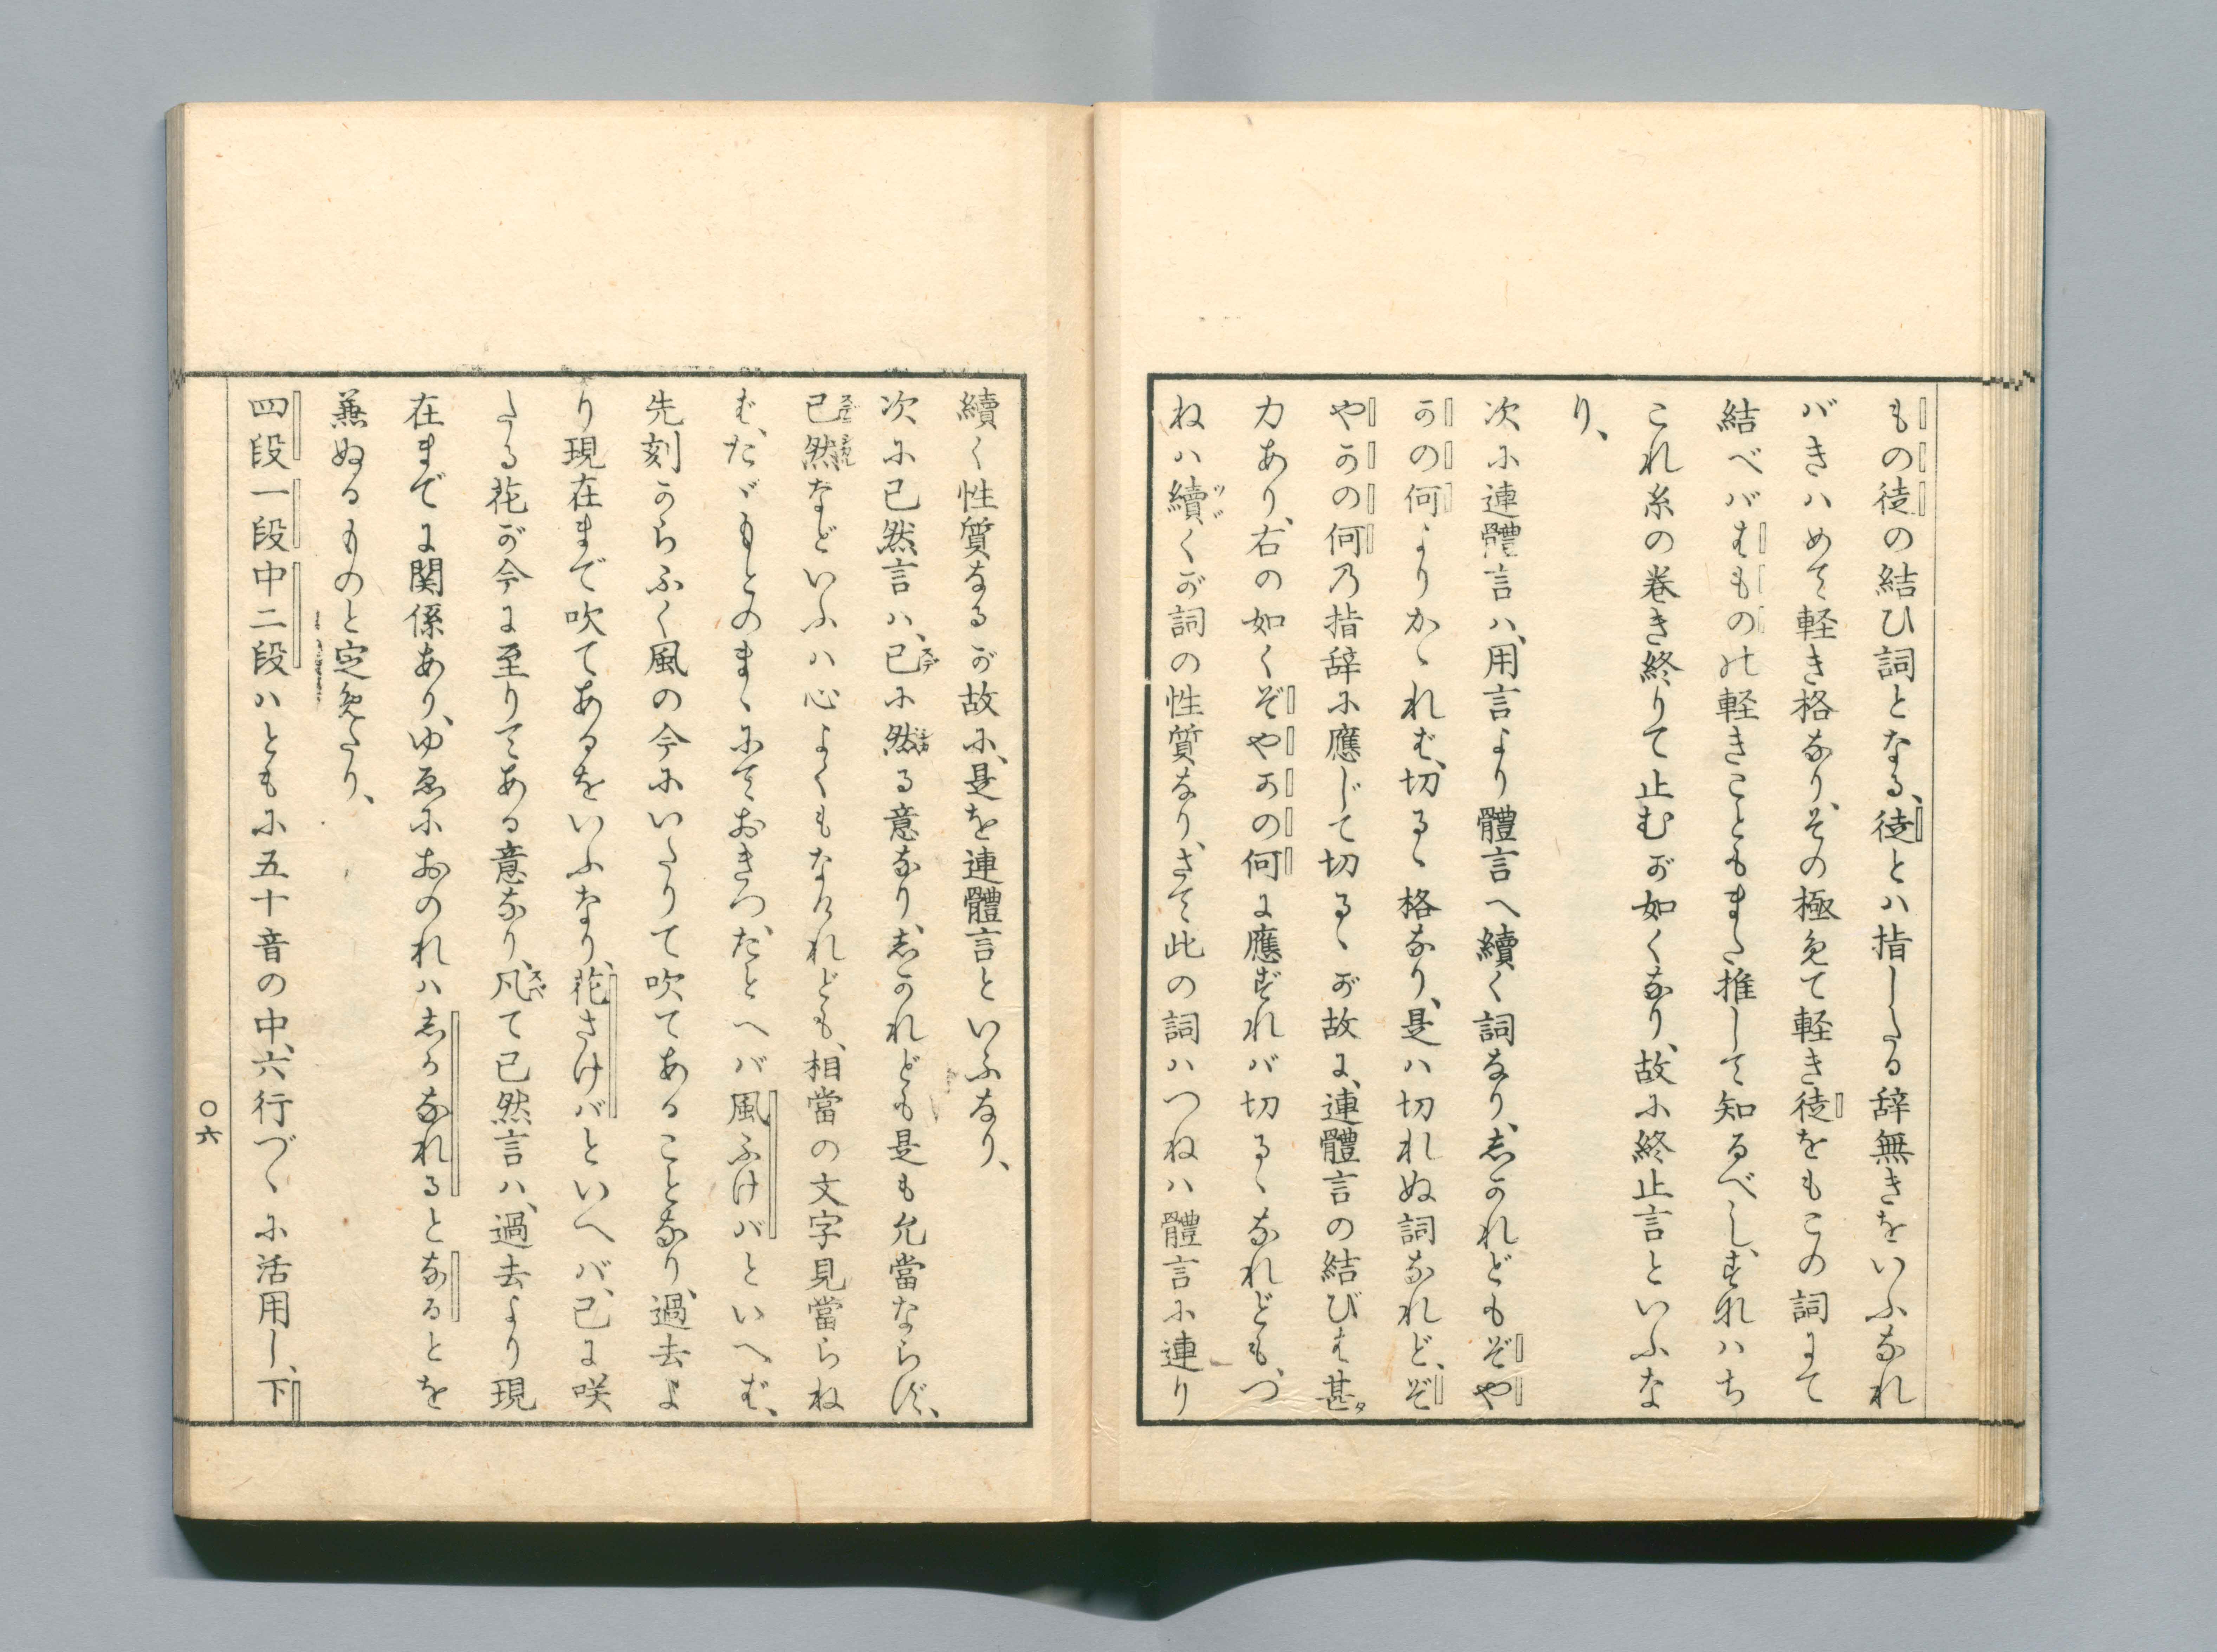 もの徒の結ひ詞となる、徒とハ指したる辞無きをいふなれ
バきハめて軽き格なり、その極めて軽き徒をもこの詞にて
結べバはもの軽きこともまた推して知るべし、されハち
これ糸の巻き終りて止むが如くなり、故に終止言といふな
り、
次に連體言ハ、用言より體言へ續く詞なり、しかれどもぞや
かの何よりかゝれば、切るゝ格なり、是ハ切れぬ詞なれど、ぞ
やかの何乃指辞に應じて切るゝが故に、連體言の結びは甚タ
力あり、右の如くぞやかの何に應ずれバ切るゝなれども、つ
ねハ續くが詞の性質なり、さて此の詞ハつねハ體言に連り
續く性質なるが故に、是を連體言といふなり、
次に已然言ハ、已に然る意なり、しかれども是も允當ならず、
已然などいふハ心よくもなけれども、相當の文字見當らね
ば、たゞもとのまゝにておきつ、たとへバ風ふけバといへば、
先刻からふく風の今にいたりて吹てあることなり、過去よ
り現在まで吹てあるをいふなり、花さけバといへバ、已に咲
たる花が今に至りてある意なり、凡て已然言ハ、過去より現
在までに関係あり、ゆゑにおのれハしかなれるとなるとを
兼ぬるものと定めたり、
四段一段中二段ハともに五十音の中、六行づゝに活用し、下
〇六